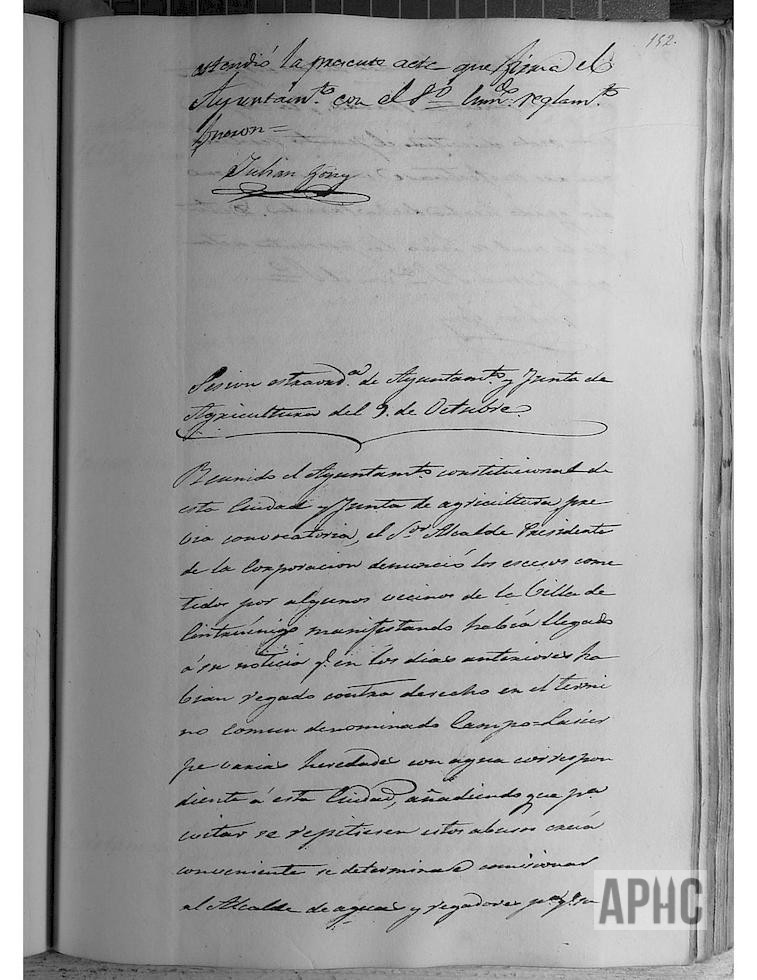 152.
estendió la presente acta que firma el
Ayuntamto. con el Sō. reglamto.
fueron=
Julian Goñy
Sesion estraorda. de Ayuntamto. y Junta de
Agricultura del 9. de Octubre.
Reunido el Ayuntamto. constitucional de
esta Ciudad y Junta de agricultura, pre
via convocatoria, el Sor. Alcalde Presidente
de la Corporacion denunció los escesos come
tidos por algunos vecinos de la Villa de
Cintruénigo manifestando habia llegado
á su noticia q. en los dias anteriores ha
bian regado contra derecho en el termi
no comun denominado Campo=Lasier
pe varias heredades con agua correspon
diente á esta Ciudad, añadiendo que pa
evitar se repitiesen estos abusos creia
conveniente se determinase comisionar
al Alcalde de aguas y regadores pa. q. su
APHC